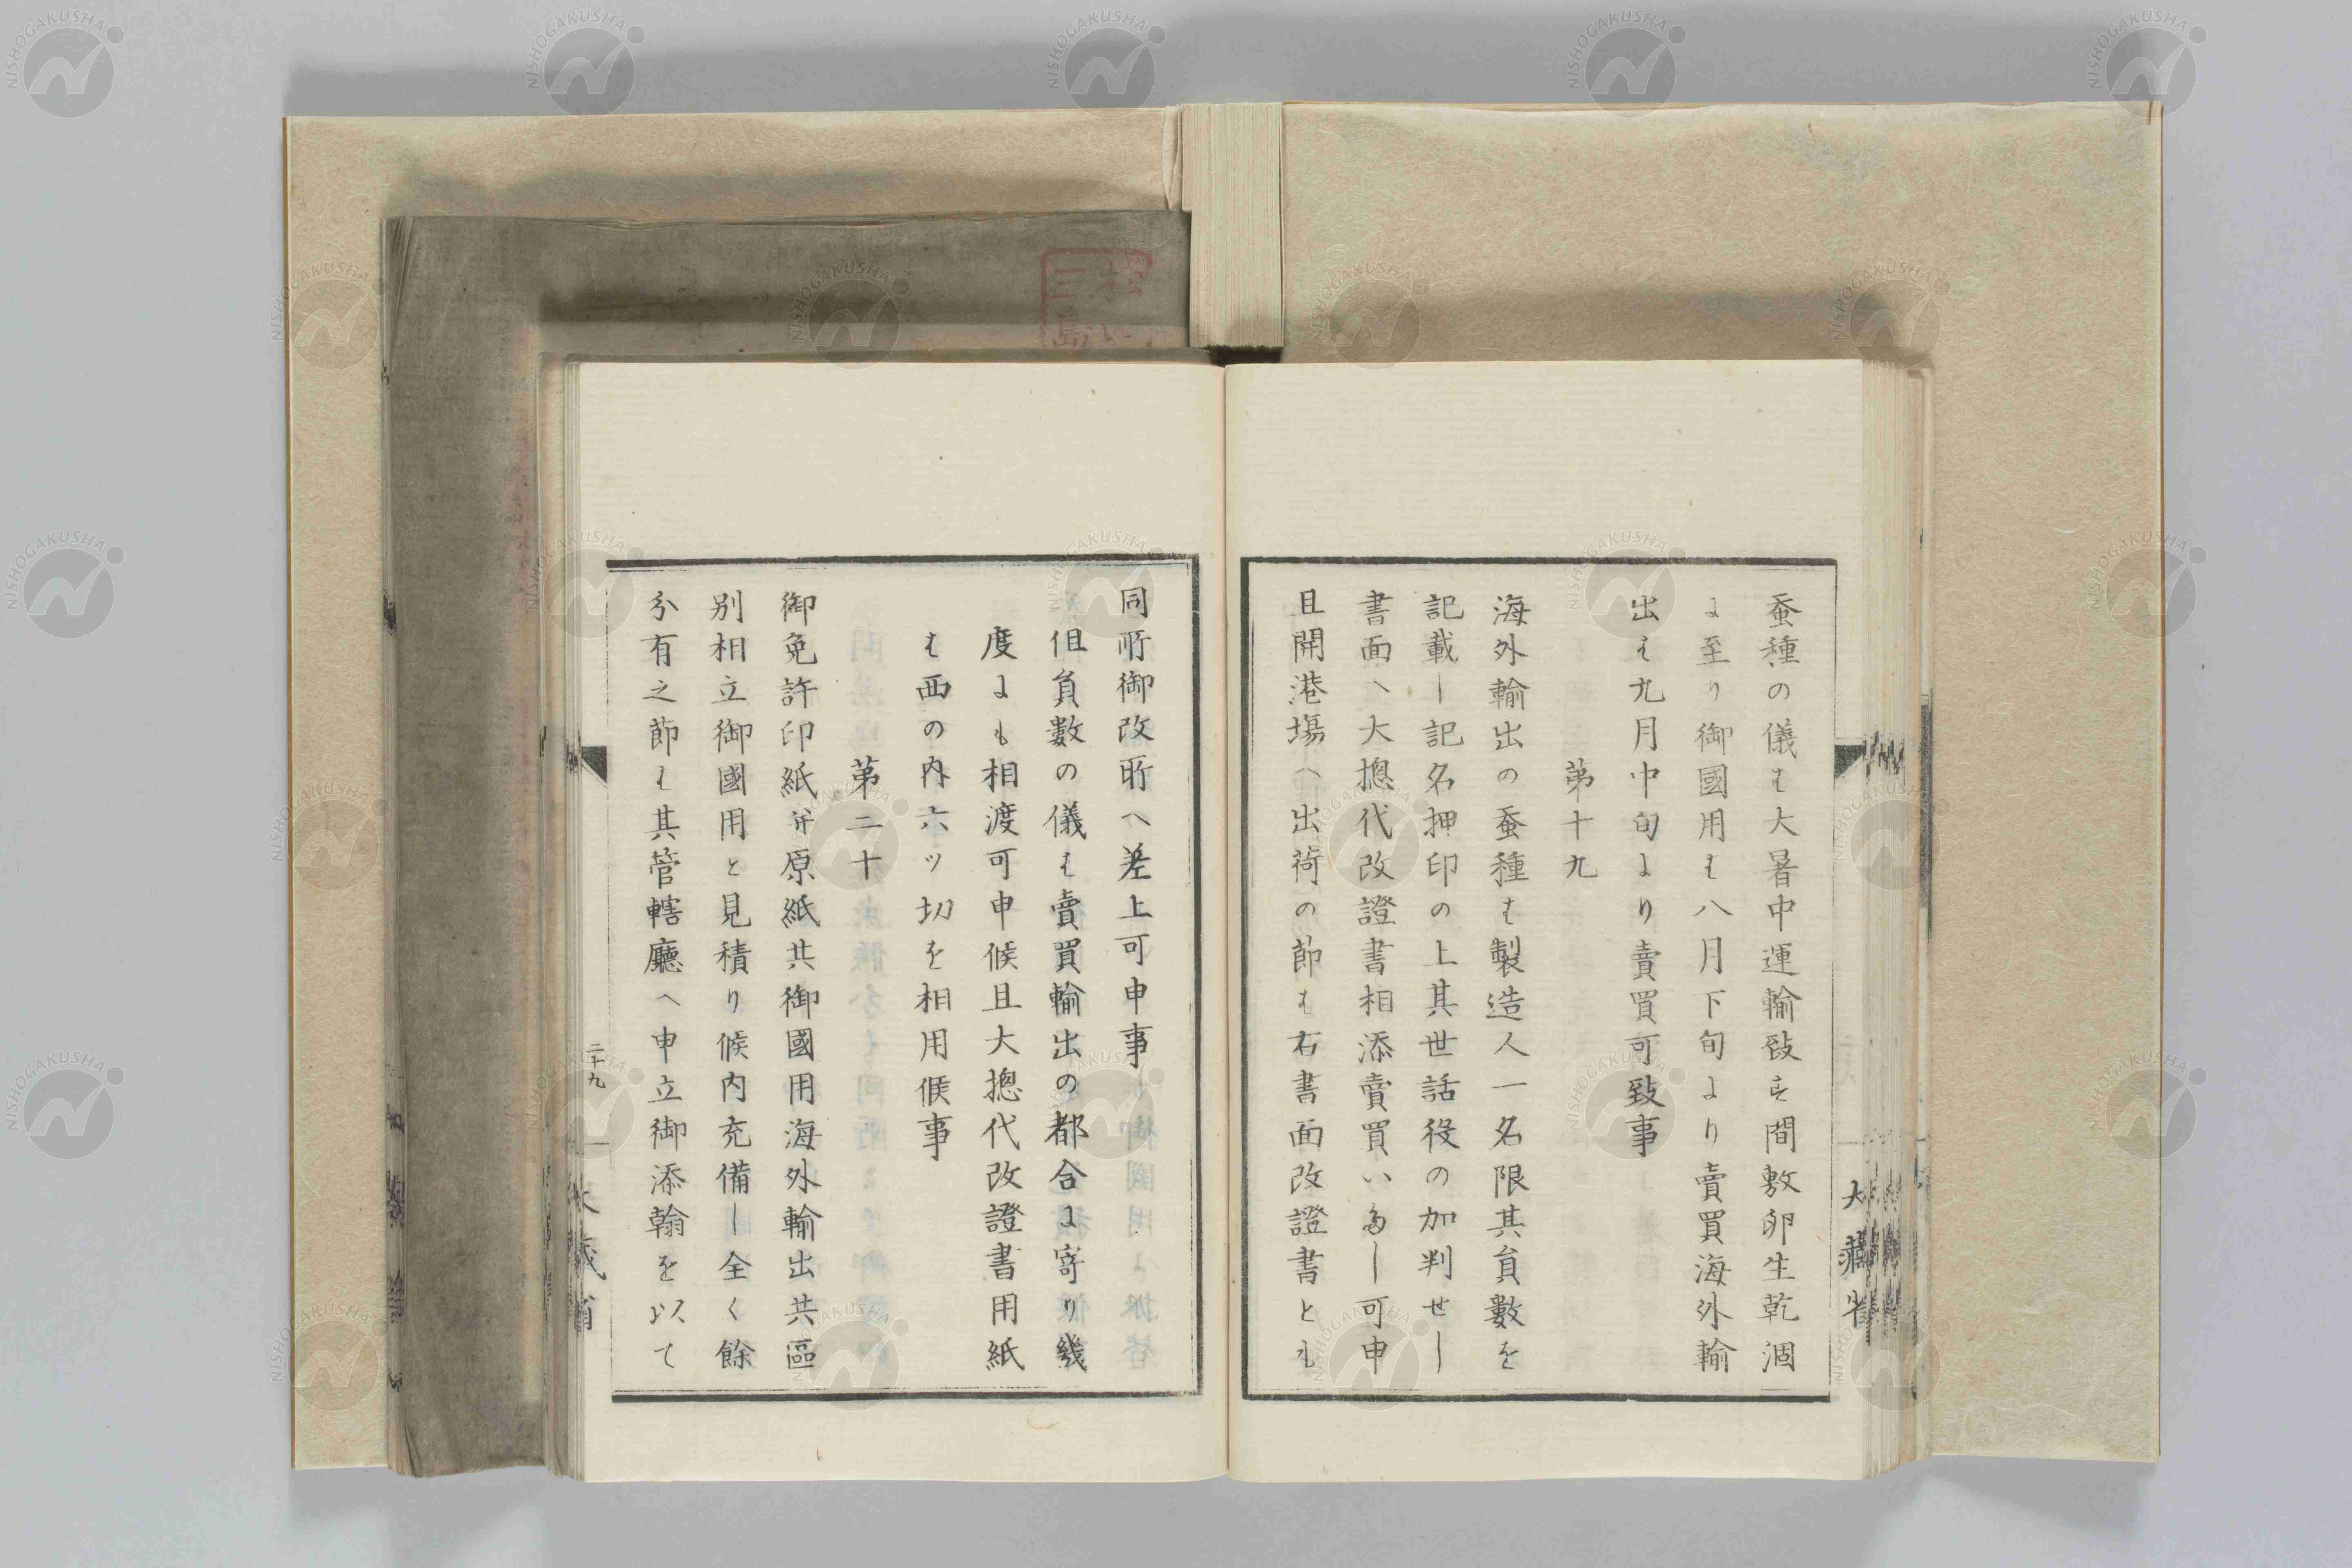 蚕種の儀は大暑中運輸致す間敷卵生乾涸
に至り御國用は八月下旬より賣買海外輸
出は九月中旬より賣買可致事
第十九
海外輸出の蚕種は製造人一名限其員數を
記載し記名押印の上其世話役の加判せし
書面へ大摠代改證書相添賣買いたし可申
且開港場へ出荷の節は右書面改證書とも
大藏省
同所御改所へ差上可申事
但負數の儀は賣買輸出の都合に寄り幾
度にも相渡可申候且大摠代改證書用紙
は西の内六ツ切を相用候事
第二十
御免許印紙并原紙共御國用海外輸出共區
別相立御國用と見積り候内充備し全く餘
分有之節は其管轄廳へ申立御添翰を以て
二十九
NISHOGAKUSHA